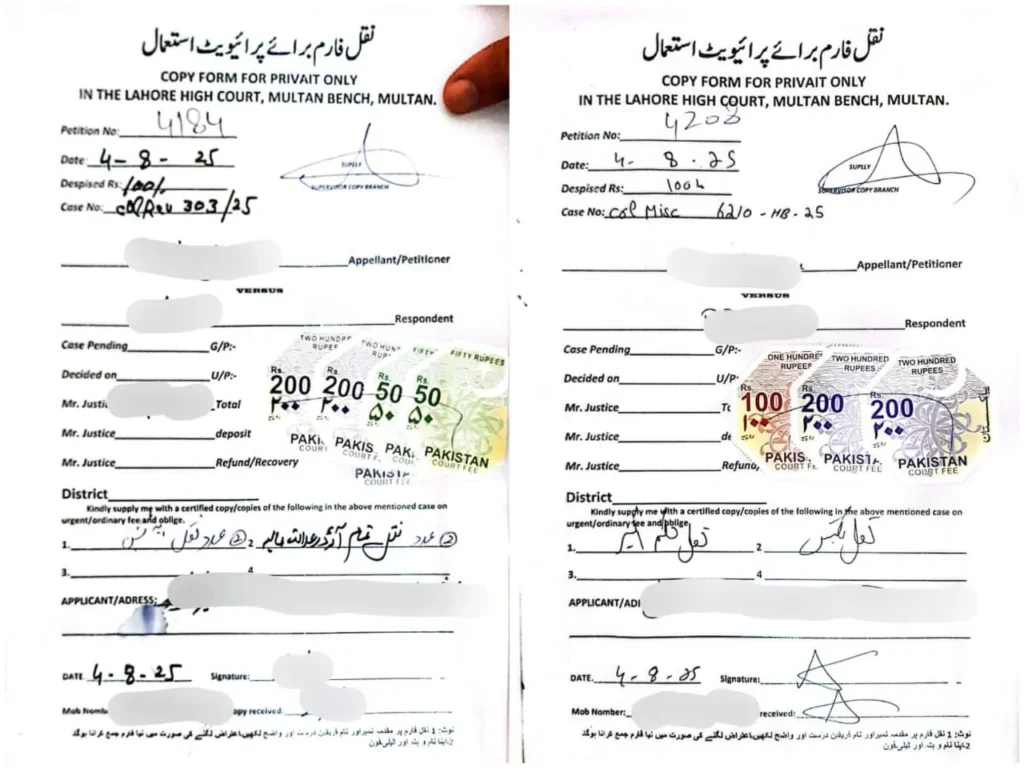 نقل فارم برائے پرائیویٹ استعمال
COPY FORM FOR PRIVAIT ONLY
IN THE LAHORE HIGH COURT, MULTAN BENCH, MULTAN.
Petition No: 4184
Date: 4-8-25
SUPLLY
Despised Rs: 100/-
SUPERVISOR COPY BRANCH
Case No: 303/25
Appellant/Petitioner
VERSUS
Respondent
Case Pending G/P:-
Decided on U/P:-
Mr. Justi Total
Mr. Justice deposit
Mr. Justice Refund/Recovery
TWO HUNDRED RUPEES
TWO HUND RUP
FIFTY
FIFTY RUPEES
Rs. 200 ۲۰۰
Rs. 200 ۲۰۰
Rs. 50 ۵۰
Rs. 50 ۵۰
PAKI COURT
PAKIS COURT F
PAK COURT
PAKISTAN COURT FEE
PAKISTA COURT FEE
District
Kindly supply me with a certified copy/copies of the following in the above mentioned case on
urgent/ordinary fee and oblige.
1. عدد نقل 2 عدد نقل تمام آرڈر عدالت عالیہ
3. 4
APPLICANT/ADRESS:
DATE 4-8-25 Signature:
Mob Numb opy received:
نوٹ: 1 نقل فارم پر مقدمہ نمبر اور نام فریقین درست اور واضح لکھیں،اعتراض لگنے کی صورت میں نیا فارم جمع کرانا ہوگا
2۔اپنا نام و پتہ اور ٹیلی فون
نقل فارم برائے پرائیویٹ استعمال
COPY FORM FOR PRIVAIT ONLY
IN THE LAHORE HIGH COURT, MULTAN BENCH, MULTAN.
Petition No: 4208
Date: 4-8-25
SUPLLY
Despised Rs: 100/-
SUPERVISOR COPY BRANCH
Case No: Misc 6210-MB-25
Appellant/Petitioner
VERSUS
Respondent
Case Pending G/P:-
Decided on U/P:-
Mr. Justice To
Mr. Justice de
Mr. Justice Refund/
ONE HUNDRE RUPEES
TWO HUNDRED RUPEES
TWO HUNDRED RUPEES
Rs. 100 ۱۰۰
Rs. 200 ۲۰۰
Rs. 200 ۲۰۰
پاکستان
PAKIS COURT FE
PAKISTA COURT FEE
PAKISTAN COURT FEE
District
Kindly supply me with a certified copy/copies of the following in the above mentioned case on
urgent/ordinary fee and oblige.
1. نقل حکم 2 نقل
3. 4
APPLICANT/ADI
DATE. 4-8-25 Signature:
Mob Number: received:
نوٹ: 1 نقل فارم پر مقدمہ نمبر اور نام فریقین درست اور واضح لکھیں،اعتراض لگنے کی صورت میں نیا فارم جمع کرانا ہوگا
2۔اپنا نام و پتہ اور ٹیلی فون